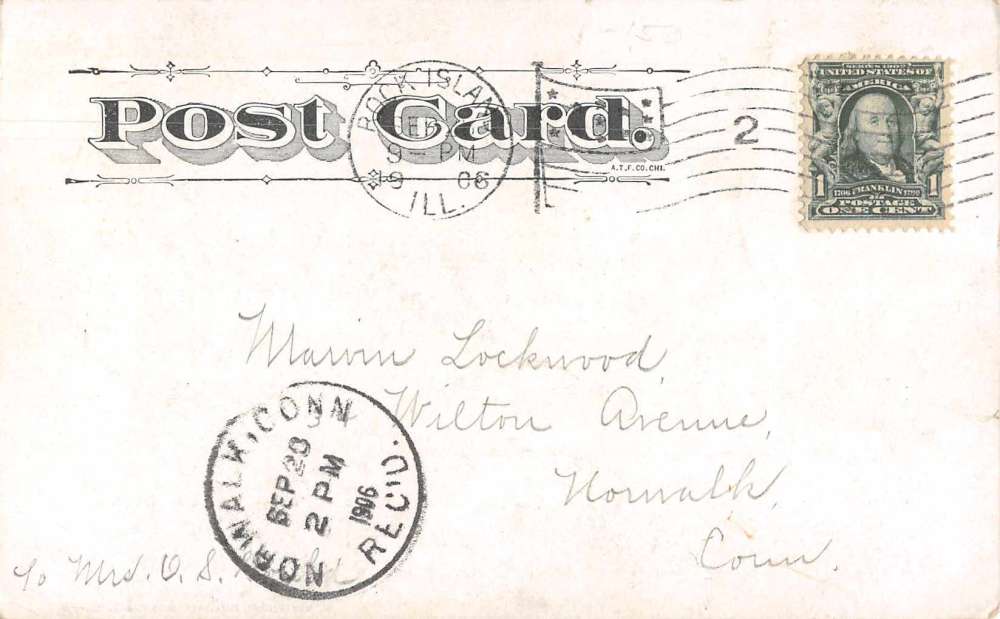 Post Card.
A.T.F. CO. CHI.
ROCK ISLAND
9 - PM
06
ILL.
2
SERIES 1902
UNITED STATES OF
AMERICA
1 1706 FRANKLIN 1790 1
POSTAGE
ONE CENT
Marvin Lockwood,
34 Wilton Avenue,
Norwalk,
Conn.
NORWALK, CONN.
SEP 20
2 PM
1906
REC'D.
c/o Mrs. O. S.